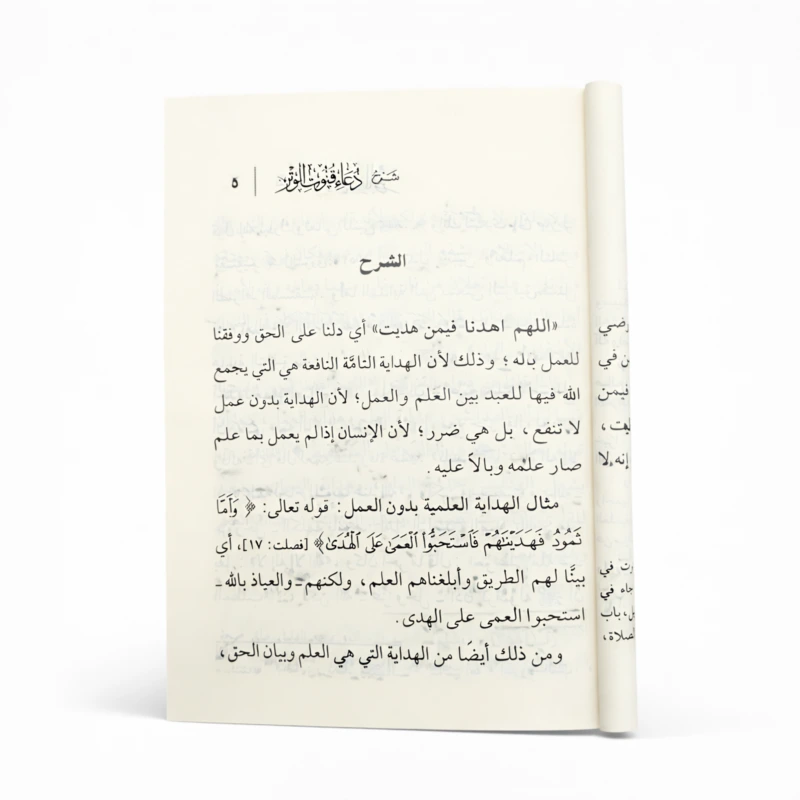 شرح دعاء قنوت الوتر | ٥
الشرح
«اللهم اهدنا فيمن هديت» أي دلنا على الحق ووفقنا
للعمل به؛ وذلك لأن الهداية التامَّة النافعة هي التي يجمع
الله فيها للعبد بين العلم والعمل؛ لأن الهداية بدون عمل
لا تنفع، بل هي ضرر؛ لأن الإنسان إذا لم يعمل بما علم
صار علمه وبالاً عليه.
مثال الهداية العلمية بدون العمل: قوله تعالى: ﴿وَأَمَّا
ثَمُودُ فَهَدَيْنَٰهُمْ فَٱسْتَحَبُّوا۟ ٱلْعَمَىٰ عَلَى ٱلْهُدَىٰ﴾ [فصلت: ١٧]، أي
بينَّا لهم الطريق وأبلغناهم العلم، ولكنهم - والعياذ بالله -
استحبوا العمى على الهدى.
ومن ذلك أيضًا من الهداية التي هي العلم وبيان الحق،
فيمن
إنه لا
جاء في
باب
الصلاة،